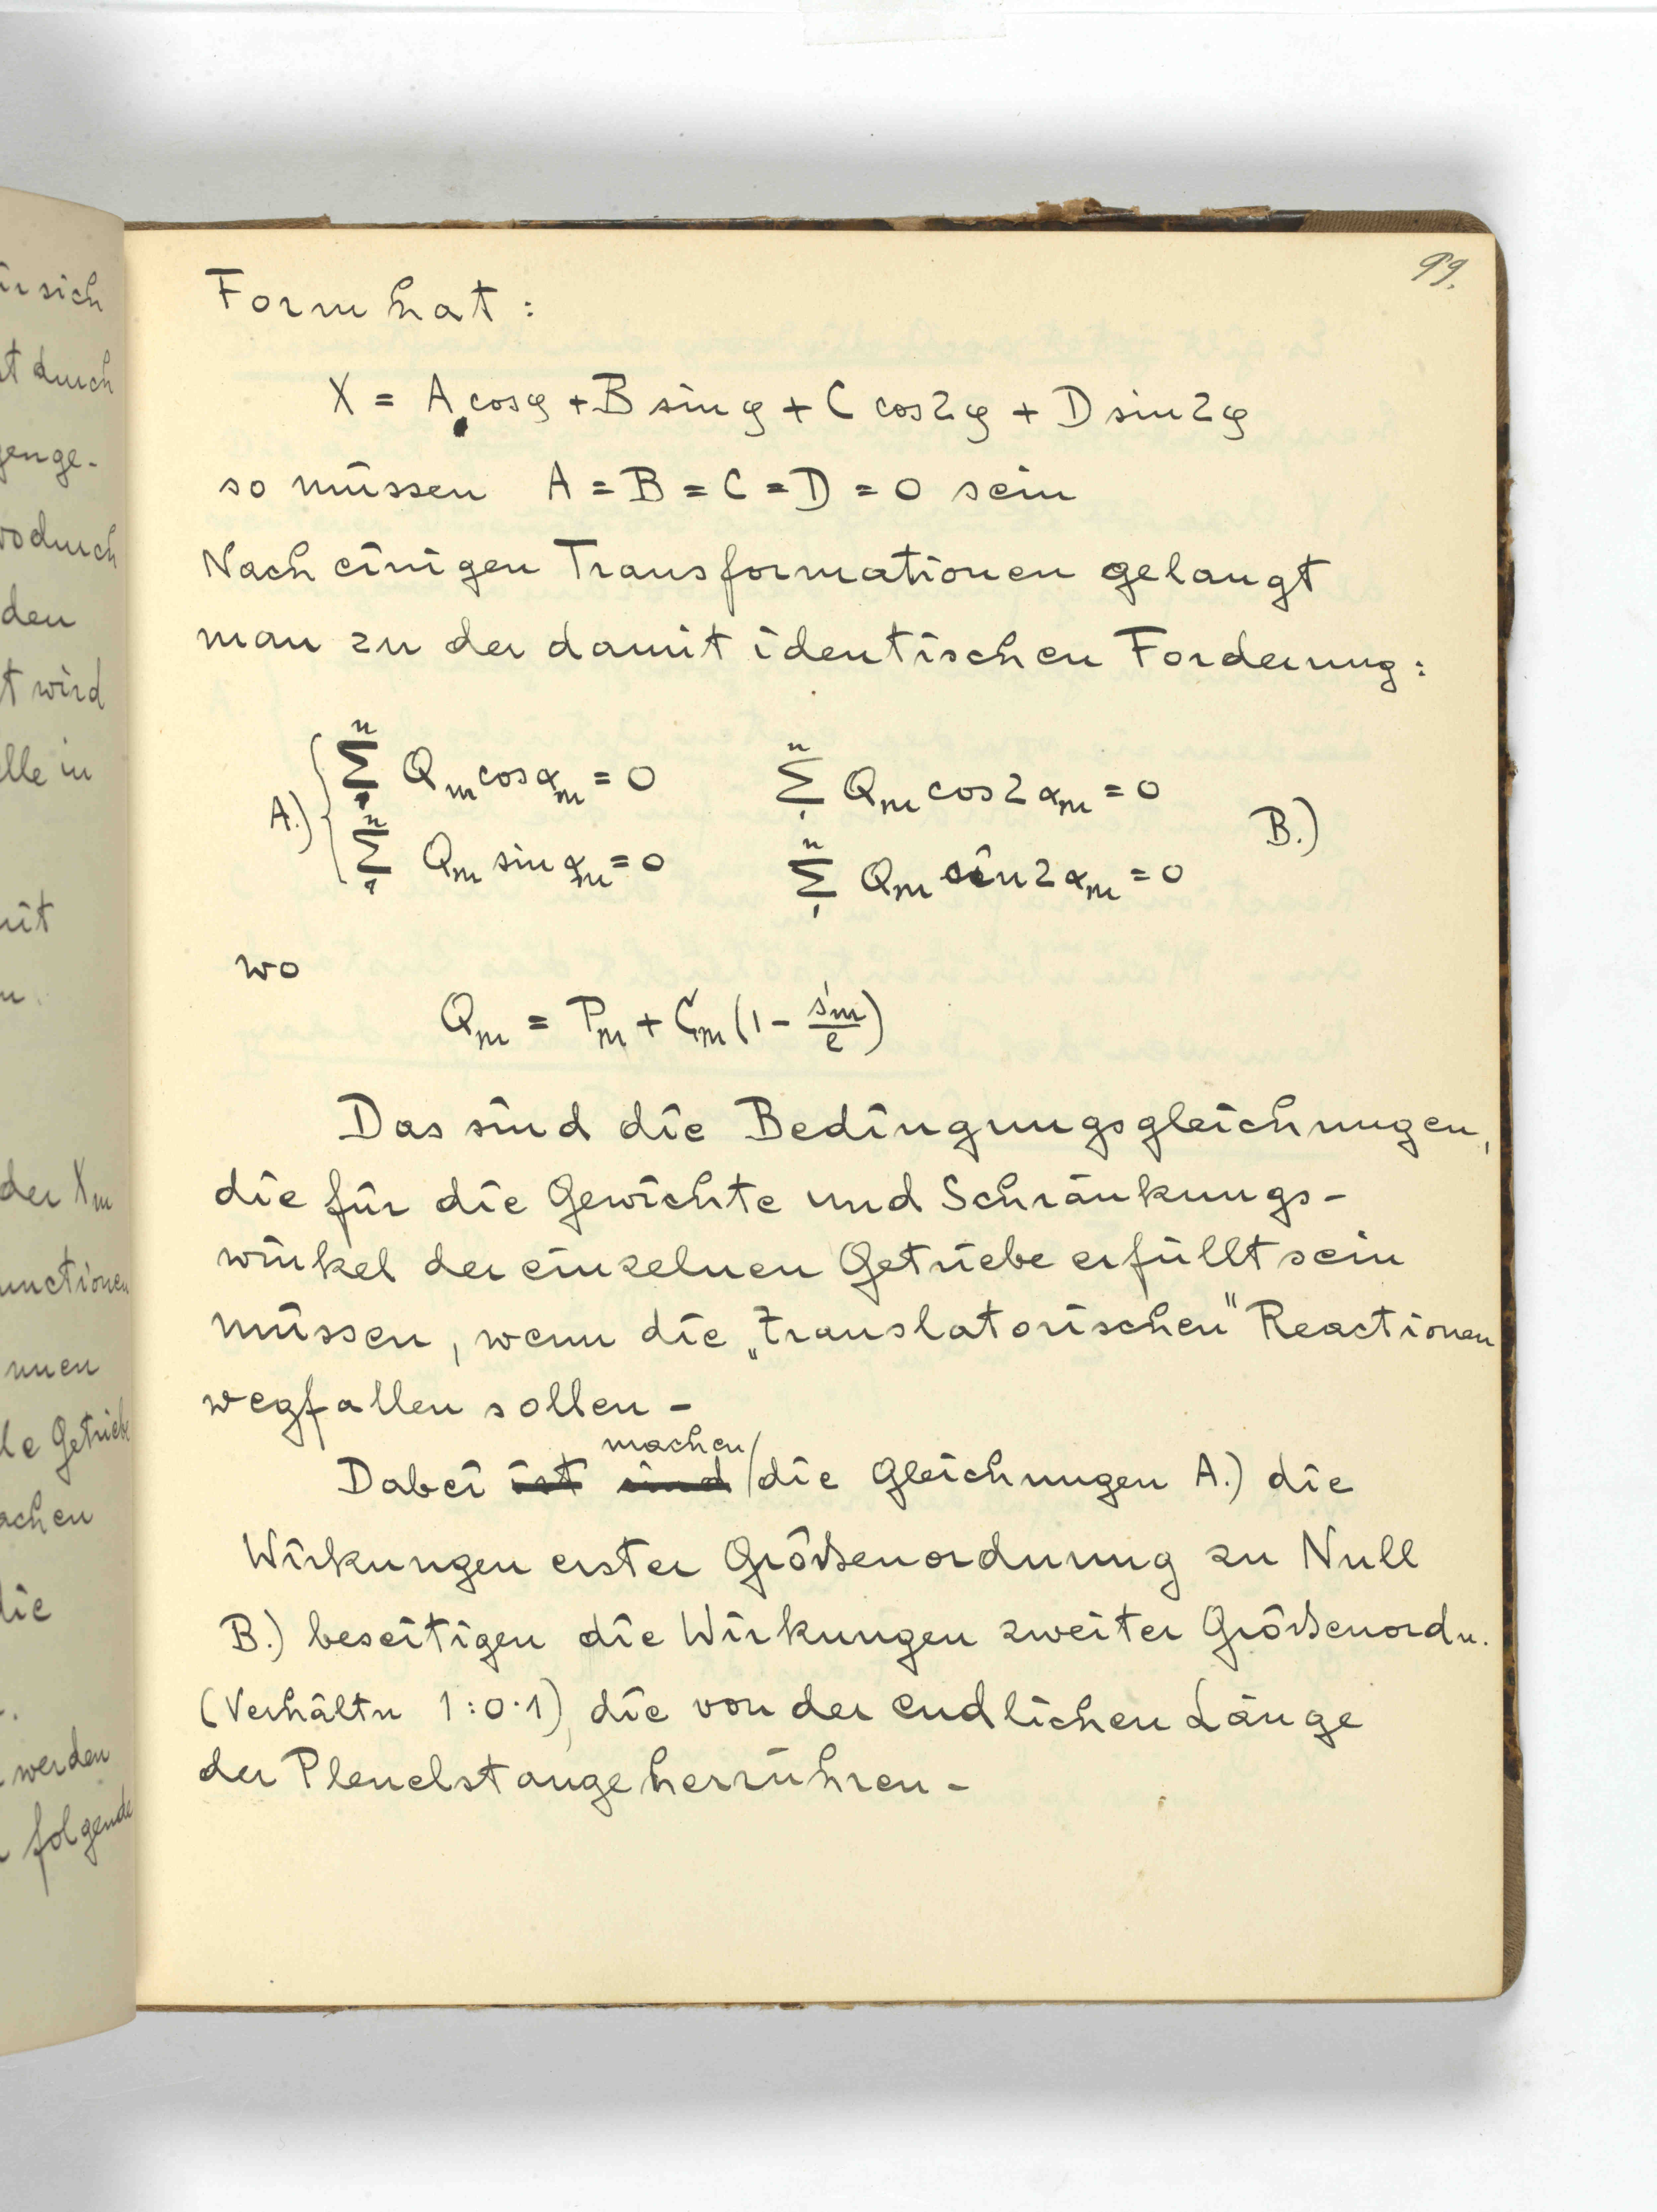 ir sich
t durch
genge-
wodurch
den
t wird
elle in
mit
der Xm
unctionen
nnen
le Getriebe
achen
die
werden
folgende
99.
Form hat :
X = A cosφ + B sinφ + C cos2φ + D sin2φ
so müssen A = B = C = D = 0 sein
Nach einigen Transformationen gelangt
man zu der damit identischen Forderung :
A.) { Σ₁ⁿ Qm cosαm = 0 Σ₁ⁿ Qm cos2αm = 0
Σ₁ⁿ Qm sinαm = 0 Σ₁ⁿ Qm sin2αm = 0 B.)
wo
Qm = Pm + Cm (1 - s'm/l)
Das sind die Bedingungsgleichungen,
die für die Gewichte und Schränkungs-
winkel der einzelnen Getriebe erfüllt sein
müssen, wenn die „translatorischen" Reactionen
wegfallen sollen -
Dabei ist sind machen die Gleichungen A.) die
Wirkungen erster Größenordnung zu Null
B.) beseitigen die Wirkungen zweiter Größenordn.
(Verhältn 1:0·1), die von der endlichen Länge
der Pleuelstange herrühren -